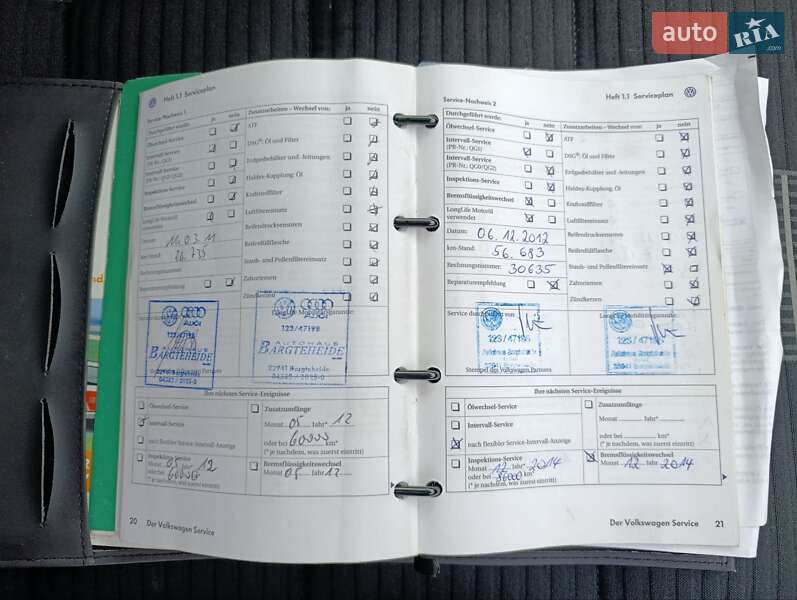 auto RIA .com
Heft 1.1 Serviceplan
Service-Nachweis 1
Durchgeführt wurde: ja nein
Ölwechsel-Service
Intervall-Service
(PR-Nr.: QG1)
Intervall-Service
(PR-Nr.: QG0/QG2)
Inspektions-Service
Bremsflüssigkeitswechsel
LongLife Motoröl
verwendet
Datum:
km-Stand:
Rechnungsnummer:
Reparaturempfehlung
Zusatzarbeiten – Wechsel von: ja nein
ATF
DSG®: Öl und Filter
Erdgasbehälter und -leitungen
Haldex-Kupplung: Öl
Kraftstofffilter
Luftfiltereinsatz
Reifendrucksensoren
Reifenfüllflasche
Staub- und Pollenfiltereinsatz
Zahnriemen
Zündkerzen
LongLife Mobilitätsgarantie:
AUDI
123/47198
AUTOHAUS
BARGTEHEIDE
22941 Bargteheide
AUDI
123/47198
AUTOHAUS
BARGTEHEIDE
22941 Bargteheide
04532 / 2015-0
Ihre nächsten Service-Ereignisse
Ölwechsel-Service
Intervall-Service
nach flexibler Service-Intervall-Anzeige
Inspektions-Service
Monat 05 Jahr 12
oder bei 60000 km*
(* je nachdem, was zuerst eintritt)
Zusatzumfänge
Monat 05 Jahr* 12
oder bei 60000 km*
(* je nachdem, was zuerst eintritt)
Bremsflüssigkeitswechsel
Monat 05 Jahr 12
20 Der Volkswagen Service
Service-Nachweis 2
Heft 1.1 Serviceplan
Durchgeführt wurde: ja nein
Ölwechsel-Service
Intervall-Service
(PR-Nr.: QG1)
Intervall-Service
(PR-Nr.: QG0/QG2)
Inspektions-Service
Bremsflüssigkeitswechsel
LongLife Motoröl
verwendet
Datum: 06.12.2012
km-Stand: 56.683
Rechnungsnummer: 30635
Reparaturempfehlung
Zusatzarbeiten – Wechsel von: ja nein
ATF
DSG®: Öl und Filter
Erdgasbehälter und -leitungen
Haldex-Kupplung: Öl
Kraftstofffilter
Luftfiltereinsatz
Reifendrucksensoren
Reifenfüllflasche
Staub- und Pollenfiltereinsatz
Zahnriemen
Zündkerzen
Service durchgeführt von:
LongLife Mobilitätsgarantie:
123/47198
Autohaus Bargteheide
123/47198
Autohaus Bargteheide
Stempel des Volkswagen Partners
Ihre nächsten Service-Ereignisse
Ölwechsel-Service
Intervall-Service
nach flexibler Service-Intervall-Anzeige
Inspektions-Service
Monat 12 Jahr* 2014
oder bei 86000 km*
(* je nachdem, was zuerst eintritt)
Zusatzumfänge
Monat Jahr*
oder bei km*
(* je nachdem, was zuerst eintritt)
Bremsflüssigkeitswechsel
Monat 12 Jahr 2014
Der Volkswagen Service 21